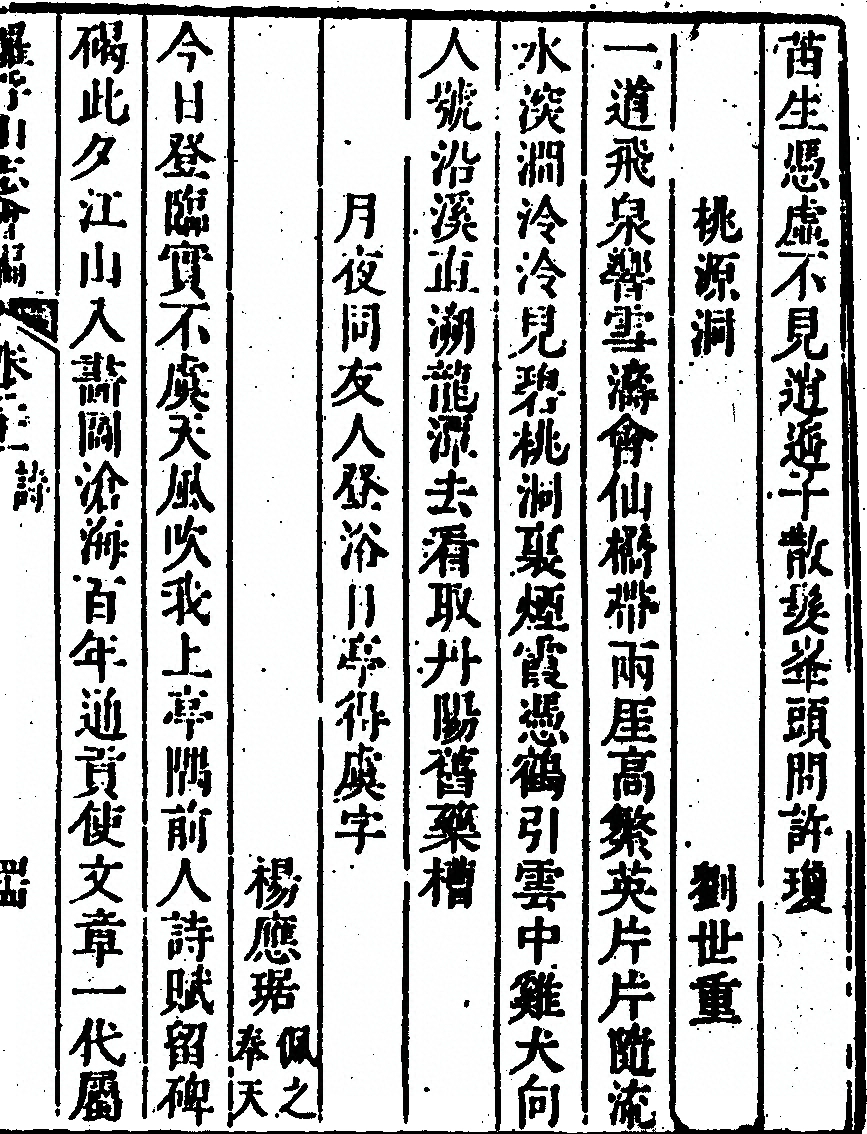 茵生憑虛不見逍遙子散髮峯頭問許瓊
桃源洞 劉世重
一道飛泉響雪濤會仙橋帶兩厓高繁英片片隨流
水淡澗泠泠見碧桃洞裏煙霞憑鶴引雲中雞犬向
人號沿溪直溯龍潭去看取丹陽舊藥槽
月夜同友人登浴日亭得虞字
楊應琚佩之奉天
今日登臨實不虞天風吹我上亭隅前人詩賦留碑
碣此夕江山入畵圖滄海百年通貢使文章一代屬
羅浮山志會編
卷二
詩